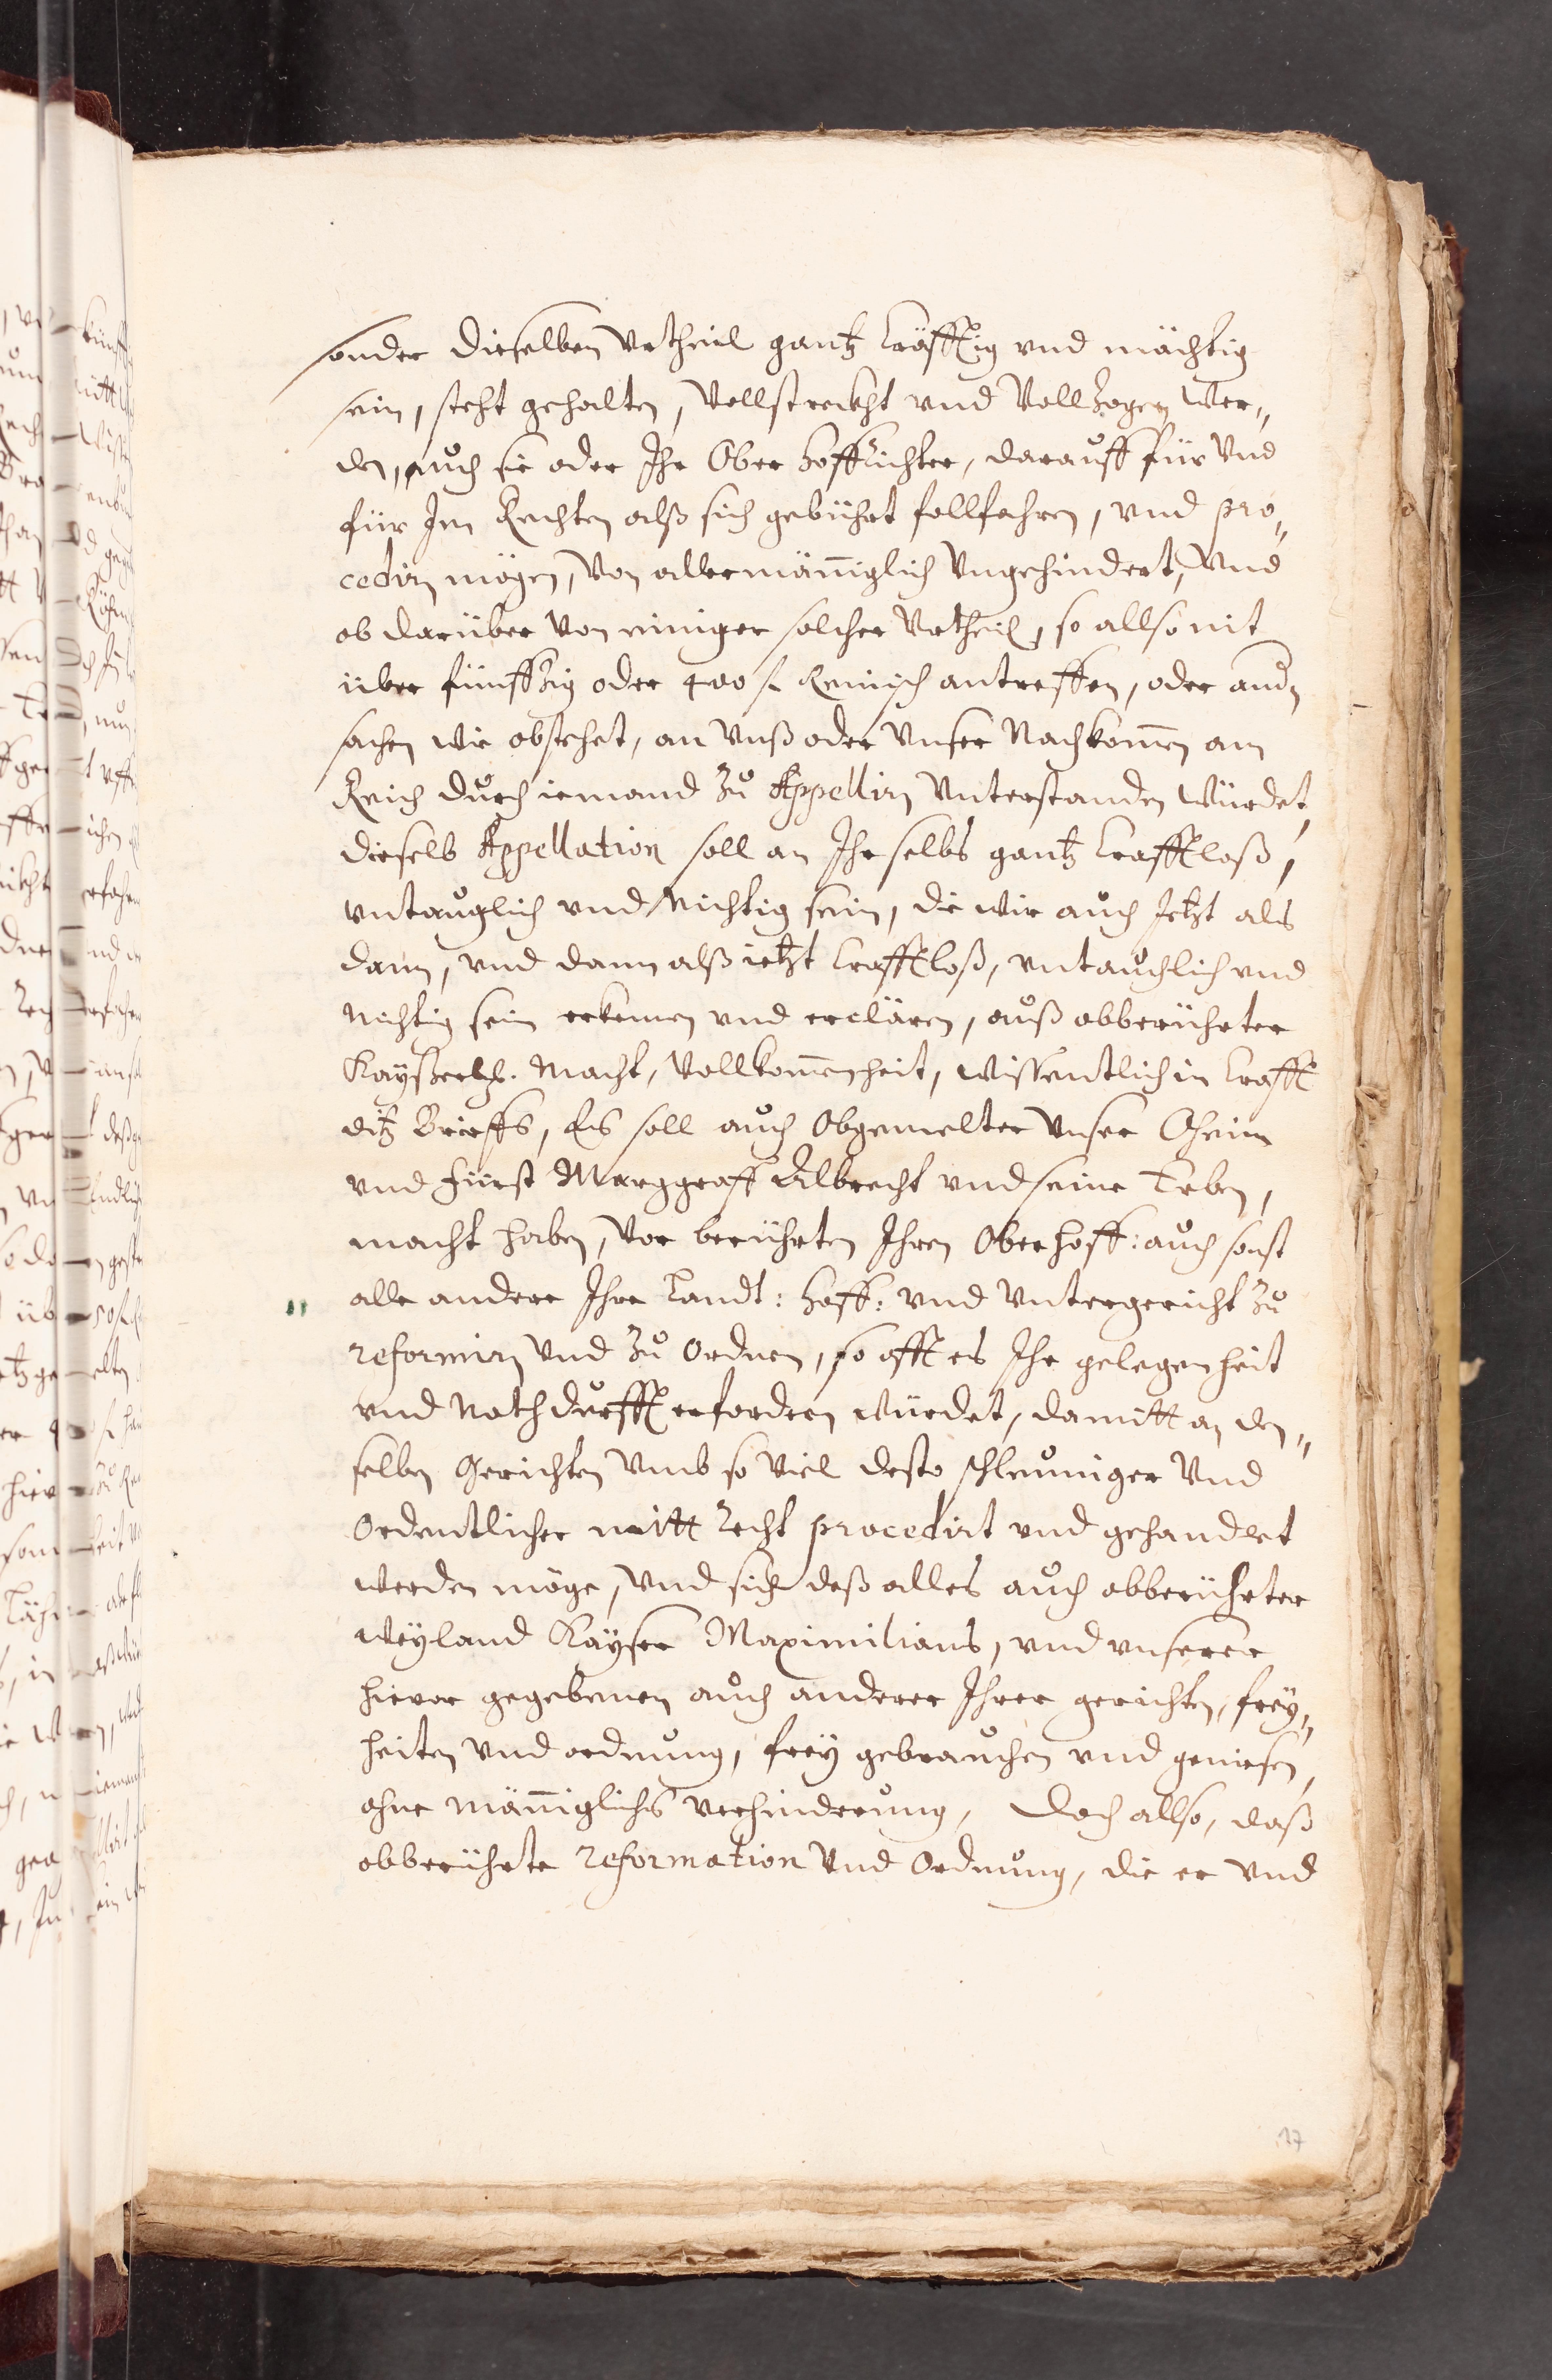 sonder dieselben Vrtheil gantz kräfftig vnd mächtig
sein, steht gehalten, Vollstreckht vnd Vollzogen Wer„
den, auch sie oder Ihr Ober Hoffrichter, darauff für Vnd
für Jm Rechten alß sich gebührt follfahren, vnd pro„
cedirn mögen, Von allermänniglich Vngehindert, Vnd
ob darüber Von einiger solcher Vrtheil, so allso nit
über fünffzig oder 400 fl Reinisch antreffen, oder andn
sachen wie obstehet, an Vnß oder Vnser Nachkommen am
Reich durch iemand zu Appellirn Vnterstanden Würdet,
dieselb Appellation soll an Ihr selbs gantz krafftloß,
vntauglich vnd Nichtig sein, die wir auch Jetzt als
dann, vnd dann alß ietzt krafftloß, vntauchlich vnd
Nichtig sein erkennen vnd erclären, auß obberührter
Kayßerlr. Macht, Vollkommenheit, wissentlich in krafft
ditz Brieffs, Es soll auch Obgemelter Vnser Oheim
vnd Fürst Marggraff Albrecht vnd seine Erben,
macht haben, Vor berührten Ihren Oberhoff: auch sonst
alle andere Ihre Landt: Hoff: vnd Vntergericht zu
reformirn Vnd zu Ordnen, so offt es Ihr gelegenheit
vnd Nothdurfft erfordern Würdet, damitt an den„
selben Gerichten Vmb so Viel desto schleuniger Vnd
Ordentlicher mitt Recht procedirt vnd gehandlet
werden möge, Vnd sich deß alles auch obberührter
Weyland Kayser Maximilians, vnd vnserer
hievor gegebenen auch anderer Ihrer gerichten, frey„
heiten Vnd ordnung, frey gebrauchen vnd geniesen,
ohne männigliches verhinderung, doch allso, daß
obberührte reformation Vnd Ordnung, die er Vnd
17